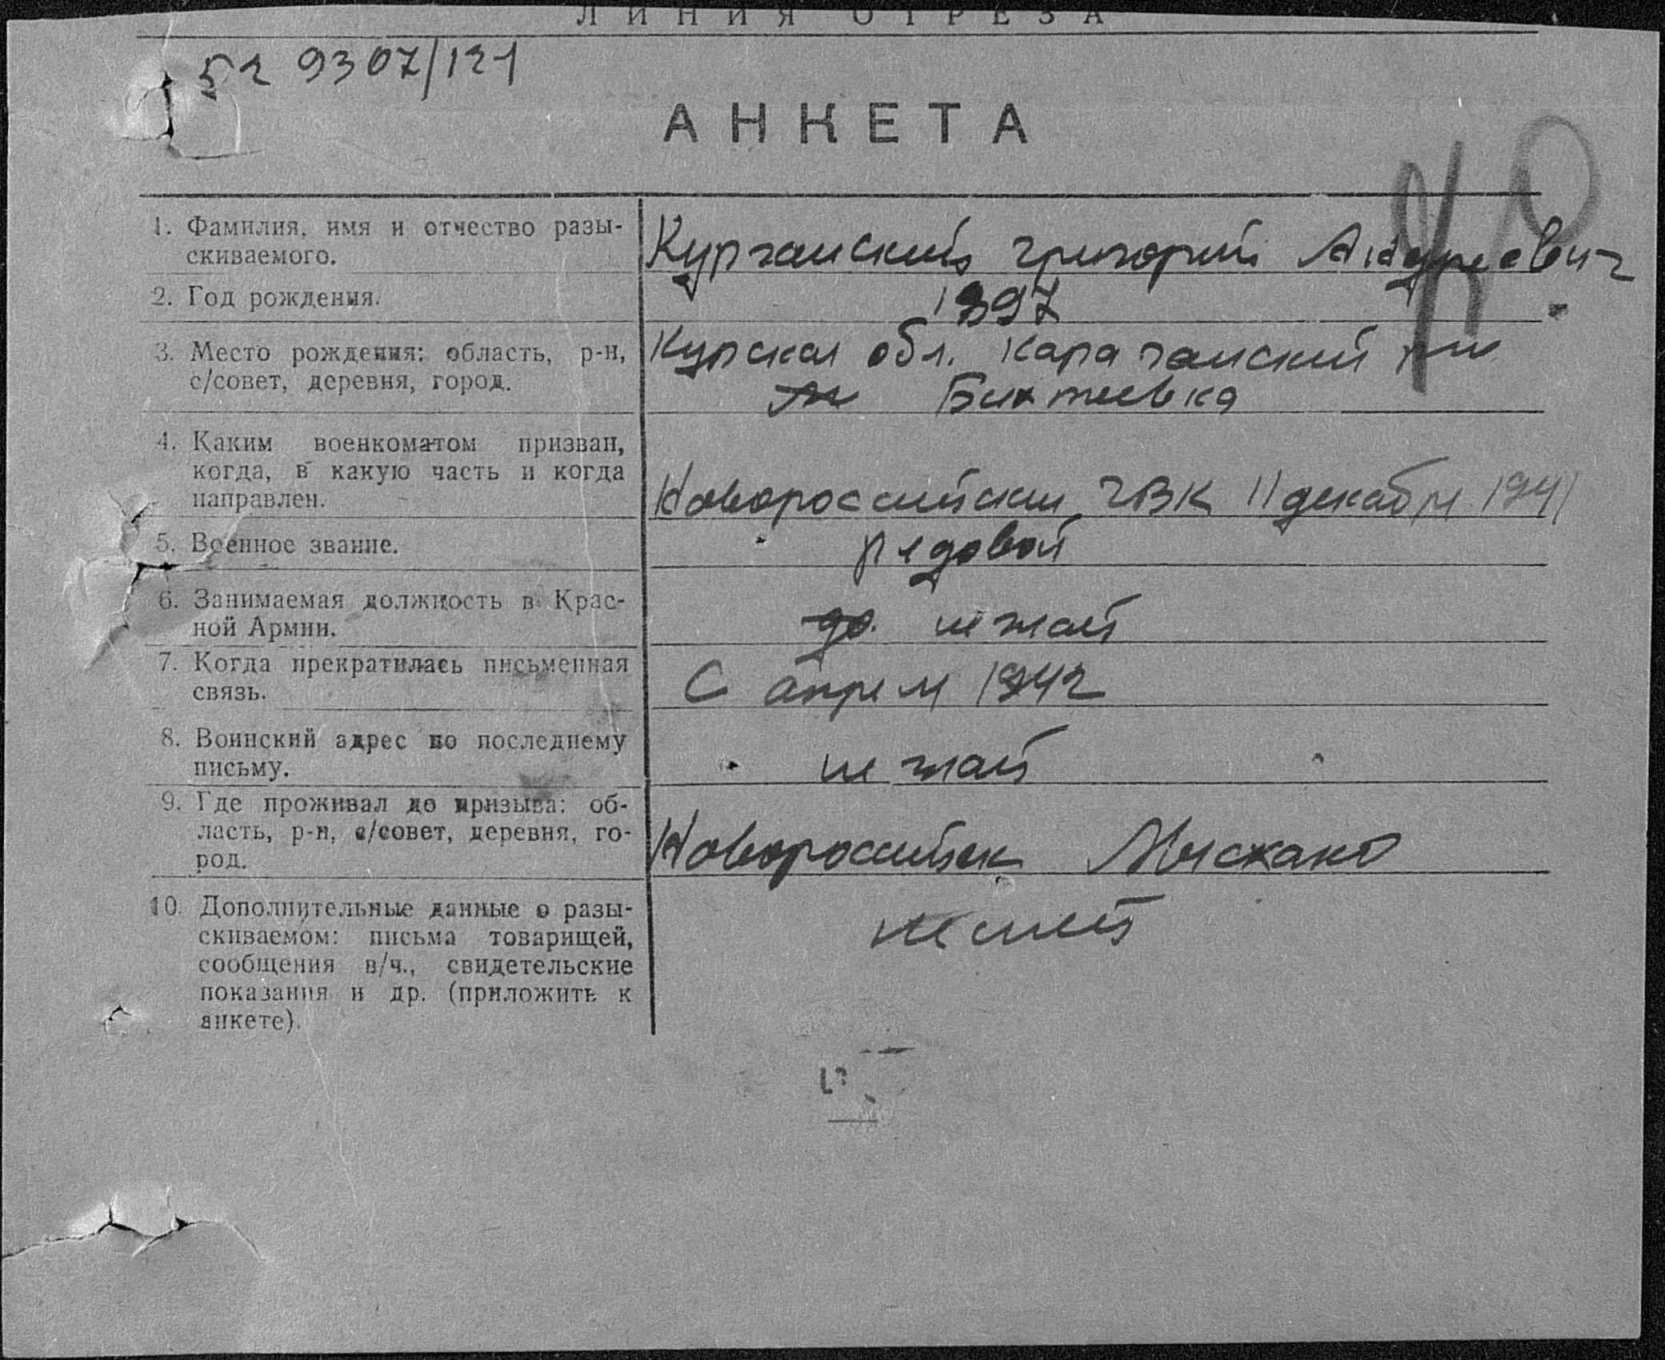 ЛИНИЯ ОТРЕЗА
52 9307/121
АНКЕТА
1. Фамилия, имя и отчество разы-
скиваемого.
Курганский Григорий Андреевич
2. Год рождения.
1897
3. Место рождения: область, р-н,
с/совет, деревня, город.
Курская обл.
4. Каким военкоматом призван,
когда, в какую часть и когда
направлен.
Новороссийским ГВК 11 декабря 1941
5. Военное звание.
рядовой
6. Занимаемая должность в Крас-
ной Армии.
не знает
7. Когда прекратилась письменная
связь.
С апреля 1942
8. Воинский адрес по последнему
письму.
не знает
9. Где проживал до призыва: об-
ласть, р-н, с/совет, деревня, го-
род.
Новороссийск Мысхако
10. Дополнительные данные о разы-
скиваемом: письма товарищей,
сообщения в/ч., свидетельские
показания и др. (приложить к
анкете).